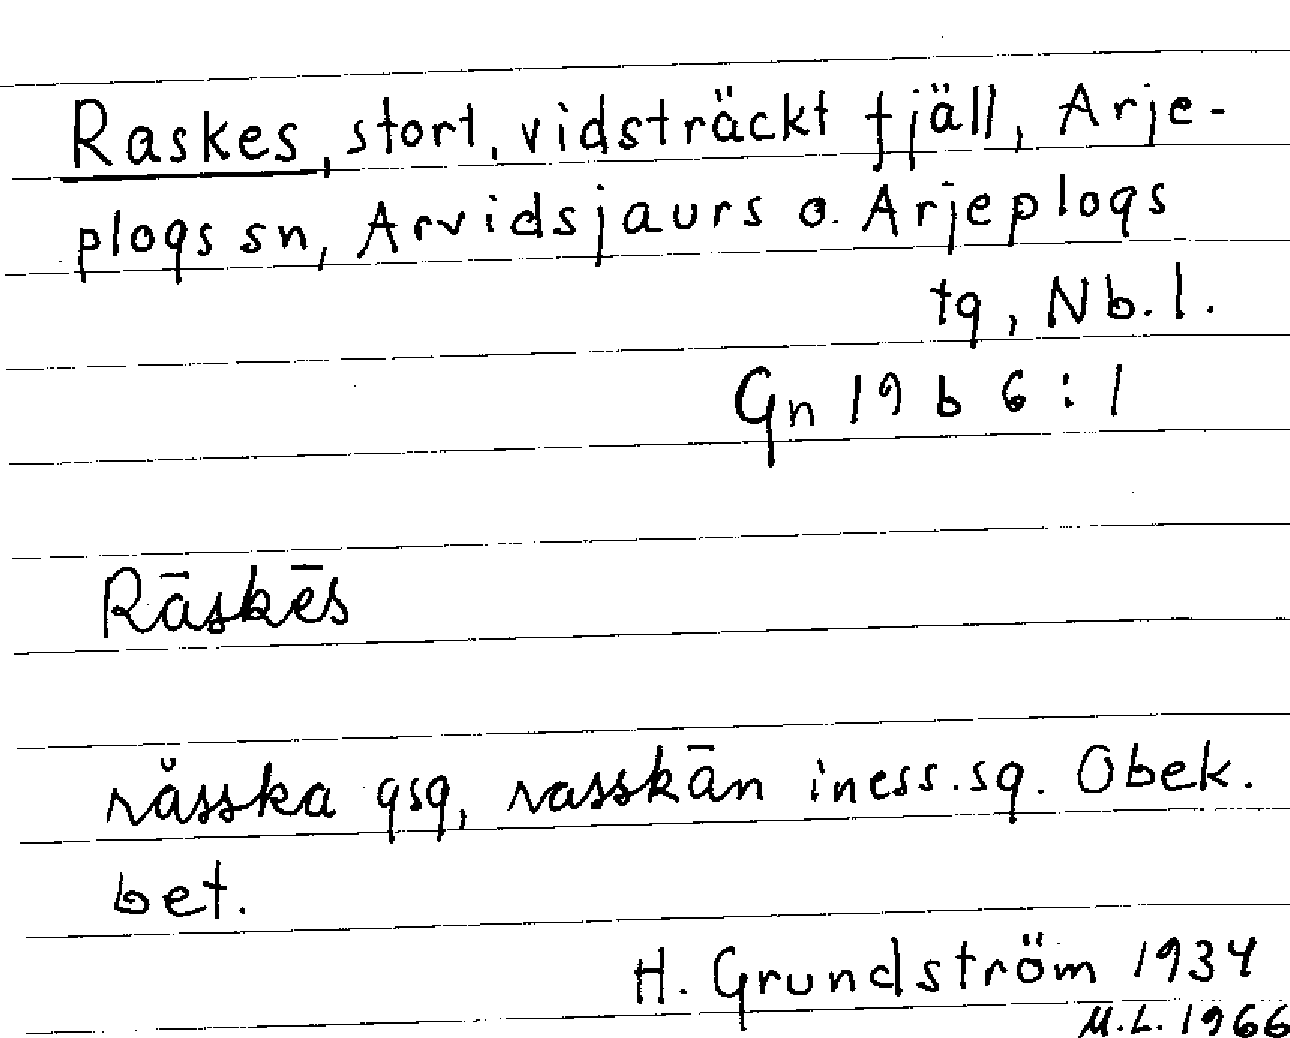 Raskes, stort, vidsträckt fjäll, Arje-
plogs sn, Arvidsjaurs o. Arjeplogs
tg, Nb. l.
Gn 19 b 6 : 1
Rāskēs
råsska gsg, rasskān iness. sg. Obek.
bet.
H. Grundström 1934
M.L. 1966